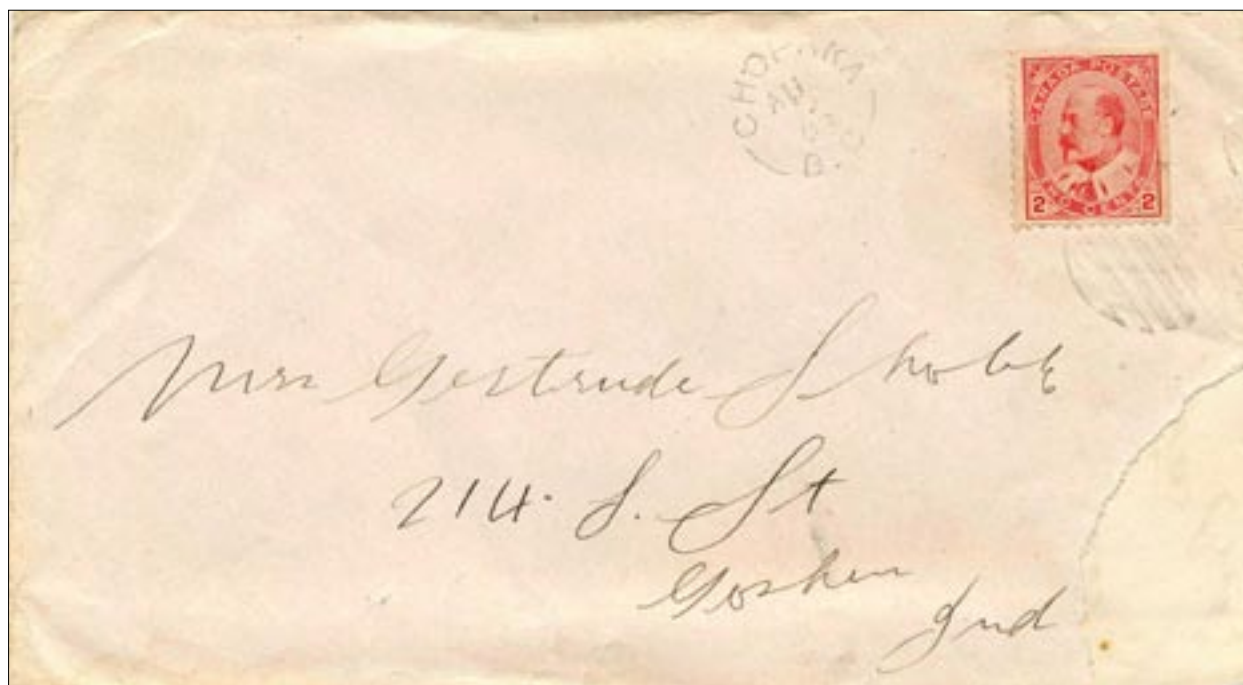 CHOPAKA
AU
B.C
CANADA POSTAGE
2 TWO CENTS 2
Gertrude
214. S. St
Goshen
Ind